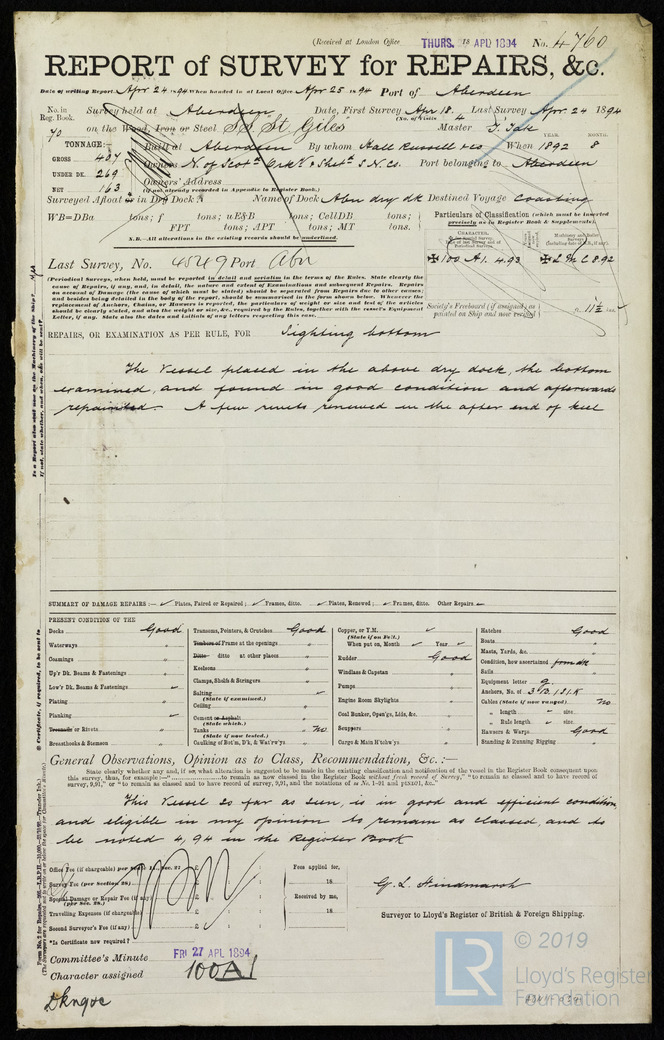 (Received at London Office THURS. 26 APL 1894 No. 4760
REPORT of SURVEY for REPAIRS, &c.
Date of writing Report Apr 24 1894 When handed in at Local Office Apr 25 1894 Port of Aberdeen
No. in Reg. Book. Survey held at Aberdeen Date, First Survey Apr 18. Last Survey Apr. 24 1894
(No. of Visits 4
70 on the Wood, Iron or Steel S.S. "St. Giles" Master J. Tait
TONNAGE:— Built at Aberdeen By whom Hall Russell & Co When 1892 8
YEAR. MONTH.
GROSS 407 Owners N. of Scotd. Ork. & Shetd. S.N. Co. Port belonging to Aberdeen
UNDER DK. 269 Owners' Address
NET 163 (if not already recorded in Appendix to Register Book.)
Surveyed Afloat or in Dry Dock? Name of Dock Abn dry dk Destined Voyage Coasting
WB=DBa tons; f tons; uE&B tons; CellDB tons;
FPT tons; APT tons; MT tons.
N.B.—All alterations in the existing records should be underlined.
Particulars of Classification (which must be inserted precisely as in Register Book & Supplements).
CHARACTER.
✠ 100 A 1. 4.93 ✠ L M C 8.92
Last Survey, No. 4549 Port Abn
(Periodical Surveys, when held, must be reported in detail and seriatim in the terms of the Rules. State clearly the
cause of Repairs, if any, and, in detail, the nature and extent of Examinations and subsequent Repairs. Repairs
on account of Damage (the cause of which must be stated) should be separated from Repairs due to other causes;
and besides being detailed in the body of the report, should be summarised in the form shown below. Whenever the
replacement of Anchors, Chains, or Hawsers is reported, the particulars of weight or size and test of the articles
should be clearly stated, and also the weight or size, &c., required by the Rules, together with the vessel's Equipment
Letter, if any. State also the dates and initials of any letters respecting this case.
Society's Freeboard (if assigned) as painted on Ship and now verified ft. 11½ ins.
REPAIRS, OR EXAMINATION AS PER RULE, FOR Sighting bottom
The Vessel placed in the above dry dock, the bottom
examined, and found in good condition and afterwards
repainted. A few rivets renewed in the after end of keel
SUMMARY OF DAMAGE REPAIRS:— Plates, Faired or Repaired; Frames, ditto. Plates, Renewed; Frames, ditto. Other Repairs.
PRESENT CONDITION OF THE
Decks Good
Waterways "
Coamings "
Up'r Dk. Beams & Fastenings "
Low'r Dk. Beams & Fastenings
Plating "
Planking
Treenails or Rivets "
Breasthooks & Stemson "
Transoms, Pointers, & Crutches Good
Timbers of Frame at the openings "
Ditto ditto at other places "
Keelsons "
Clamps, Shelfs & Stringers "
Salting
(State if examined.)
Ceiling "
Cement or Asphalt "
(State which.)
Tanks No
(State if now tested.)
Caulking of Bot'm, D'k, & Wat'rw'ys "
Copper, or Y.M.
(State if on Felt.)
When put on, Month Year
Rudder Good
Windlass & Capstan "
Pumps "
Engine Room Skylights "
Coal Bunker, Open'gs, Lids, &c. "
Scuppers "
Cargo & Main H'tchw'ys "
Hatches Good
Boats "
Masts, Yards, &c. "
Condition, how ascertained from dk
Sails "
Equipment letter g.
Anchors, No. of 3 B, 1 S, 1 K
Cables (State if now ranged) No
" length " size
" Rule length " size
Hawsers & Warps Good
Standing & Running Rigging "
General Observations, Opinion as to Class, Recommendation, &c.:—
State clearly whether any and, if so, what alteration is suggested to be made in the existing classification and notification of the vessel in the Register Book consequent upon
this survey, thus, for example:—"to remain as now classed in the Register Book without fresh record of Survey," "to remain as classed and to have record of
survey, 9,91," or "to remain as classed and to have record of survey, 9,91, and the notations of ss No. 1-91 and ptND91, &c."
This Vessel so far as seen, is in good and efficient condition
and eligible in my opinion to remain as classed, and to
be noted 4, 94 in the Register Book
Office Fee (if chargeable) per Scale II., Sec. 27
Survey Fee (per Section 28)
Special Damage or Repair Fee (if any)
(per Sec. 28.)
Travelling Expenses (if chargeable)
Second Surveyor's Fee (if any)
*Is Certificate now required?
Fees applied for,
18
Received by me,
18
G. L. Hindmarsh
Surveyor to Lloyd's Register of British & Foreign Shipping.
Committee's Minute FRI 27 APL 1894
Character assigned 100A1
LR
© 2019
Lloyd's Register
Foundation